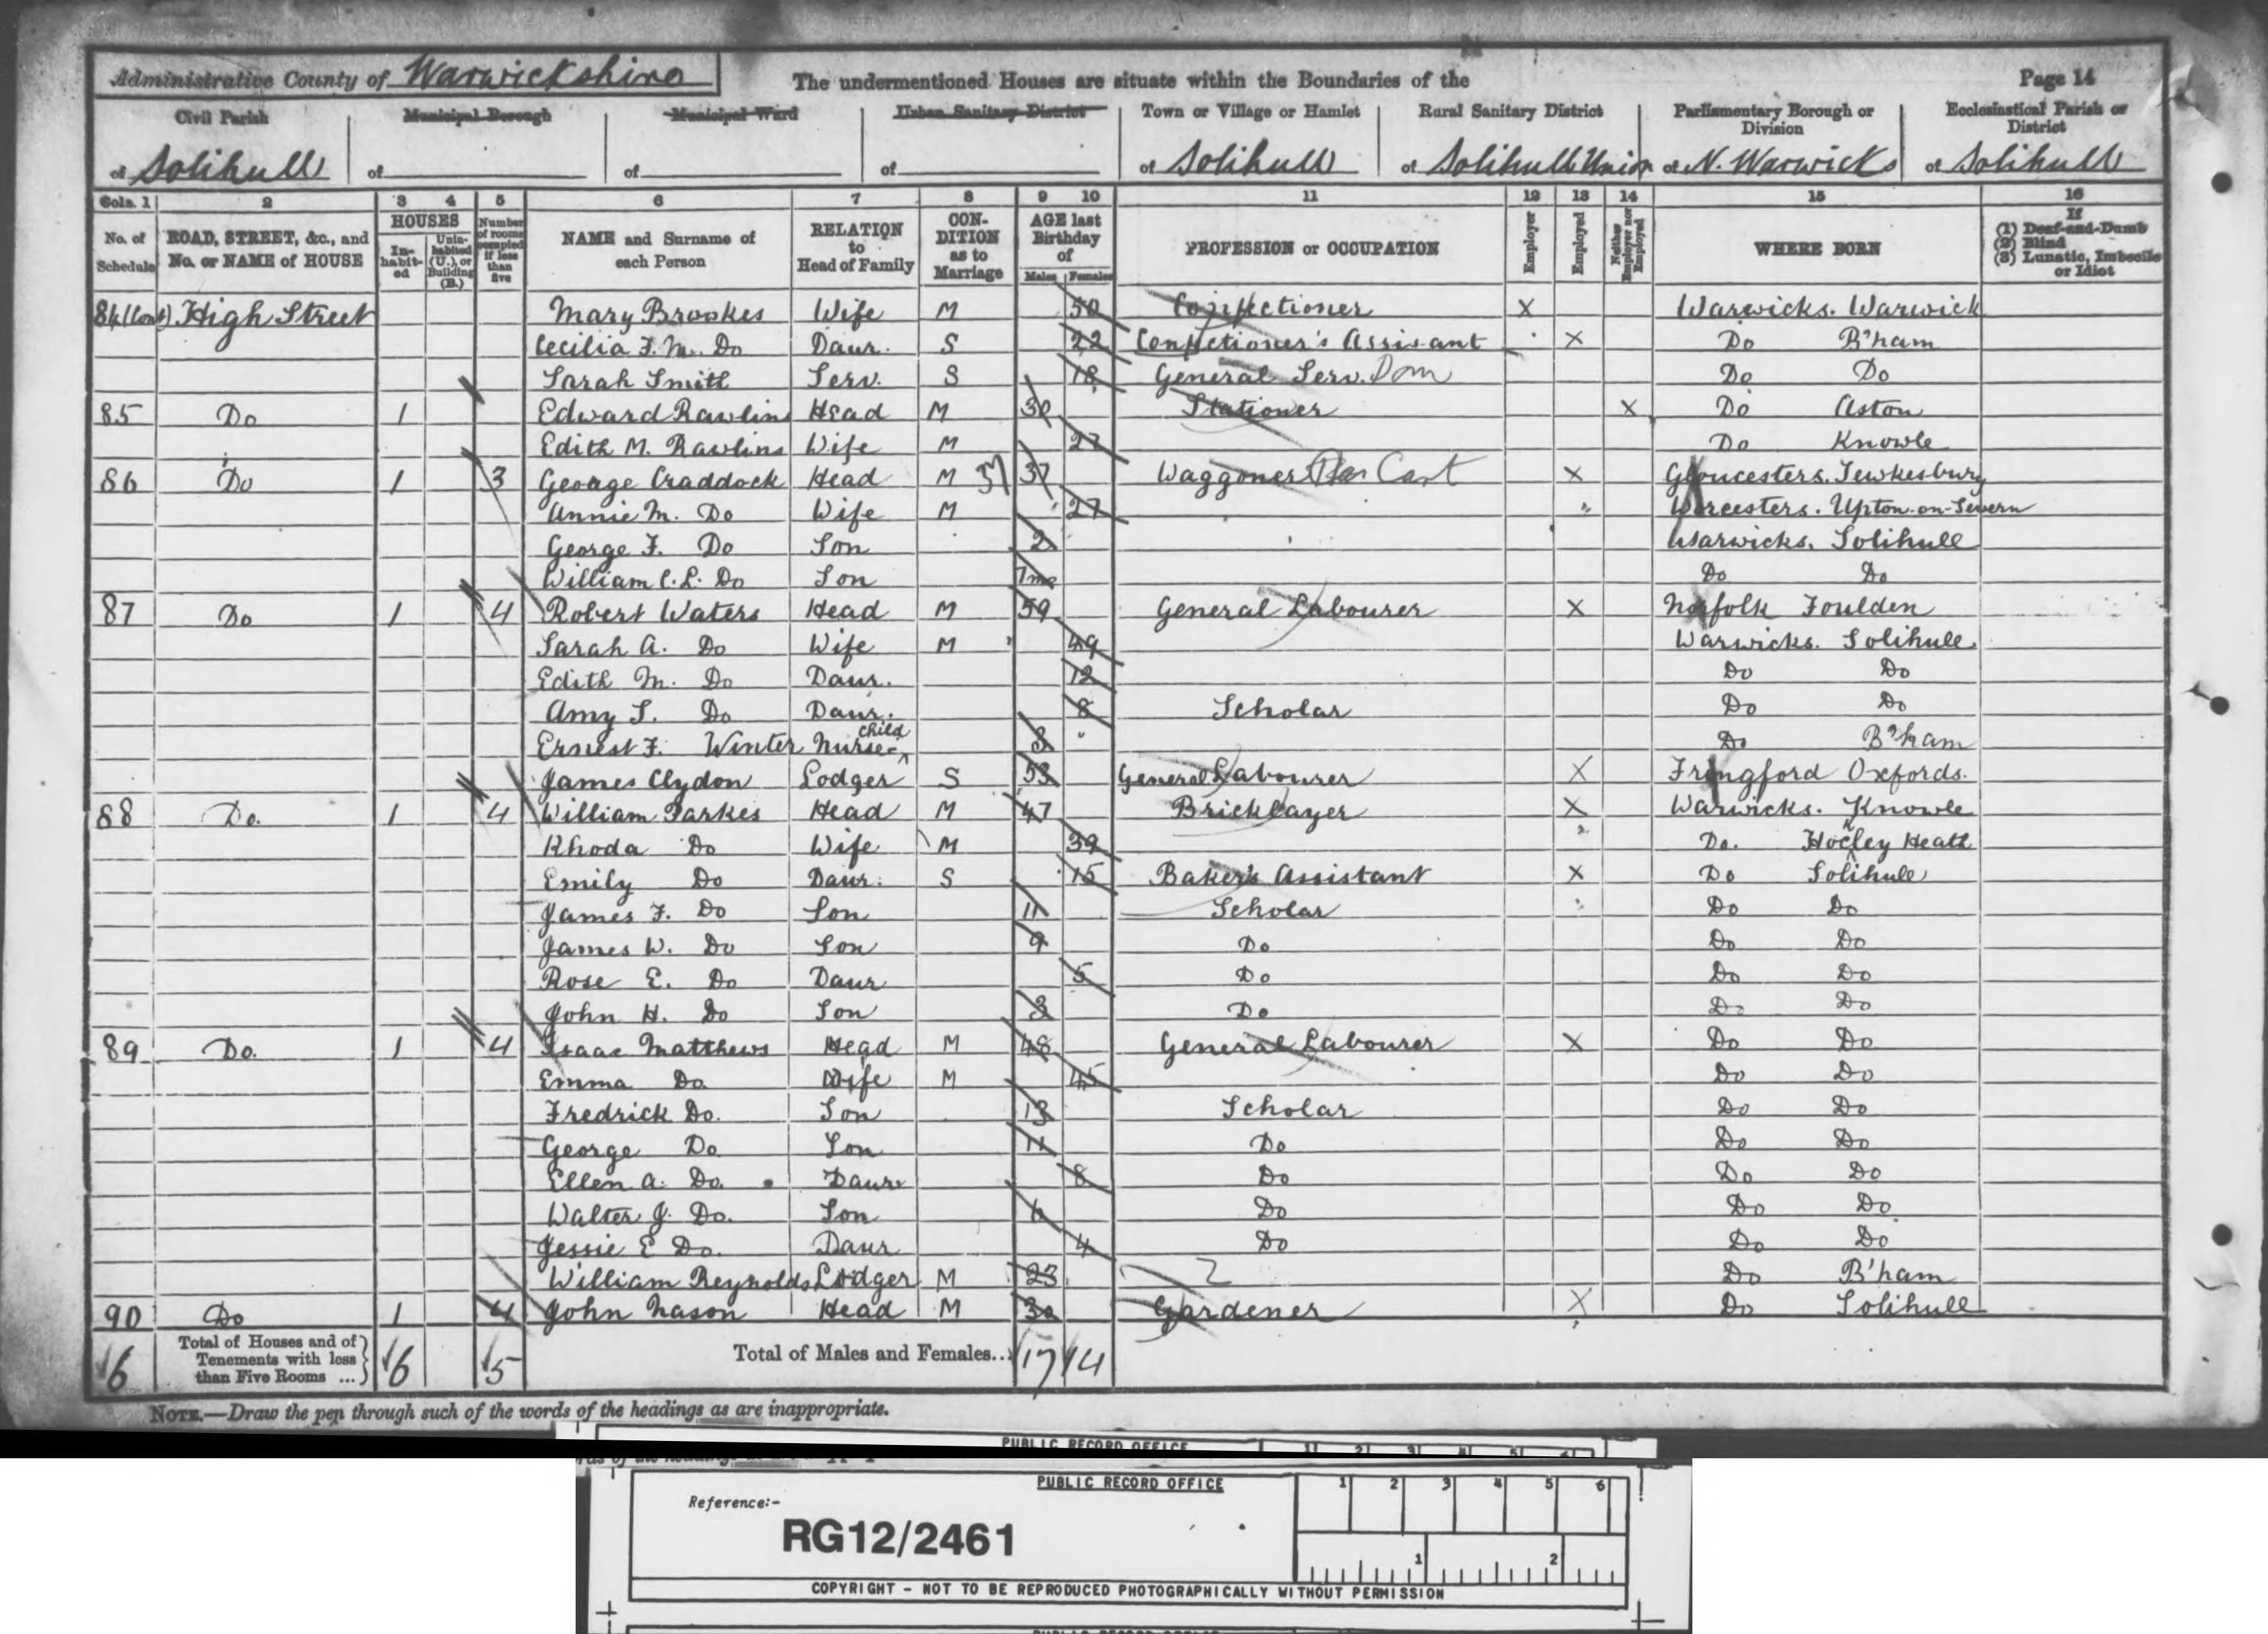 Administrative County of Warwickshire The undermentioned Houses are situate within the Boundaries of the Page 14
Civil Parish Municipal Borough Municipal Ward Urban Sanitary District Town or Village or Hamlet Rural Sanitary District Parliamentary Borough or Division Ecclesiastical Parish or District
of Solihull of of of of Solihull of Solihull Union of N. Warwicks of Solihull
Cols. 1 2 3 4 5 6 7 8 9 10 11 12 13 14 15 16
No. of Schedule ROAD, STREET, &c., and No. or NAME of HOUSE HOUSES Inhabited Uninhabited (U.), or Building (B.) Number of rooms occupied if less than five NAME and Surname of each Person RELATION to Head of Family CONDITION as to Marriage AGE last Birthday of Males Females PROFESSION or OCCUPATION Employer Employed Neither Employer nor Employed WHERE BORN If (1) Deaf-and-Dumb (2) Blind (3) Lunatic, Imbecile or Idiot
84 (Cont) High Street Mary Brookes Wife M 50 Confectioner X Warwicks. Warwick
Cecilia F. M. Do Daur. S 22 Confectioner's Assisant X Do B'ham
Sarah Smith Serv. S 18 General Serv. Dom Do Do
85 Do 1 Edward Rawlins Head M 30 Stationer X Do Aston
Edith M. Rawlins Wife M 27 Do Knowle
86 Do 1 3 George Craddock Head M 37 37 Waggoner Cart X Gloucesters. Tewkesbury
Annie M. Do Wife M 27 Worcesters. Upton-on-Severn
George F. Do Son 2 Warwicks. Solihull
William C. L. Do Son 7mo Do Do
87 Do 1 4 Robert Waters Head M 59 General Labourer X Norfolk Foulden
Sarah A. Do Wife M 49 Warwicks. Solihull
Edith M. Do Daur. 12 Do Do
Amy S. Do Daur. 8 Scholar Do Do
Ernest F. Winter Nurse-child 3 Do B'ham
James Clydon Lodger S 53 General Labourer X Fringford Oxfords.
88 Do. 1 4 William Parkes Head M 47 Bricklayer X Warwicks. Knowle
Rhoda Do Wife M 39 Do. Hockley Heath
Emily Do Daur. S 15 Baker's Assistant X Do Solihull
James F. Do Son 11 Scholar Do Do
James W. Do Son 9 Do Do Do
Rose E. Do Daur 5 Do Do Do
John H. Do Son 3 Do Do Do
89 Do. 1 4 Isaac Matthews Head M 48 General Labourer X Do Do
Emma Do. Wife M 45 Do Do
Fredrick Do. Son 13 Scholar Do Do
George Do Son 11 Do Do Do
Ellen A. Do. Daur 8 Do Do Do
Walter J. Do. Son 6 Do Do Do
Jessie E Do. Daur 4 Do Do Do
William Reynolds Lodger M 23 Do B'ham
90 Do 1 4 John Nason Head M 30 Gardener X Do Solihull
6 Total of Houses and of Tenements with less than Five Rooms ... 6 5 Total of Males and Females... 17 14
NOTE.—Draw the pen through such of the words of the headings as are inappropriate.
PUBLIC RECORD OFFICE 1 2 3 4 5 6
PUBLIC RECORD OFFICE 1 2 3 4 5 6
Reference:-
RG12/2461
1 2
COPYRIGHT - NOT TO BE REPRODUCED PHOTOGRAPHICALLY WITHOUT PERMISSION
PUBLIC RECORD OFFICE